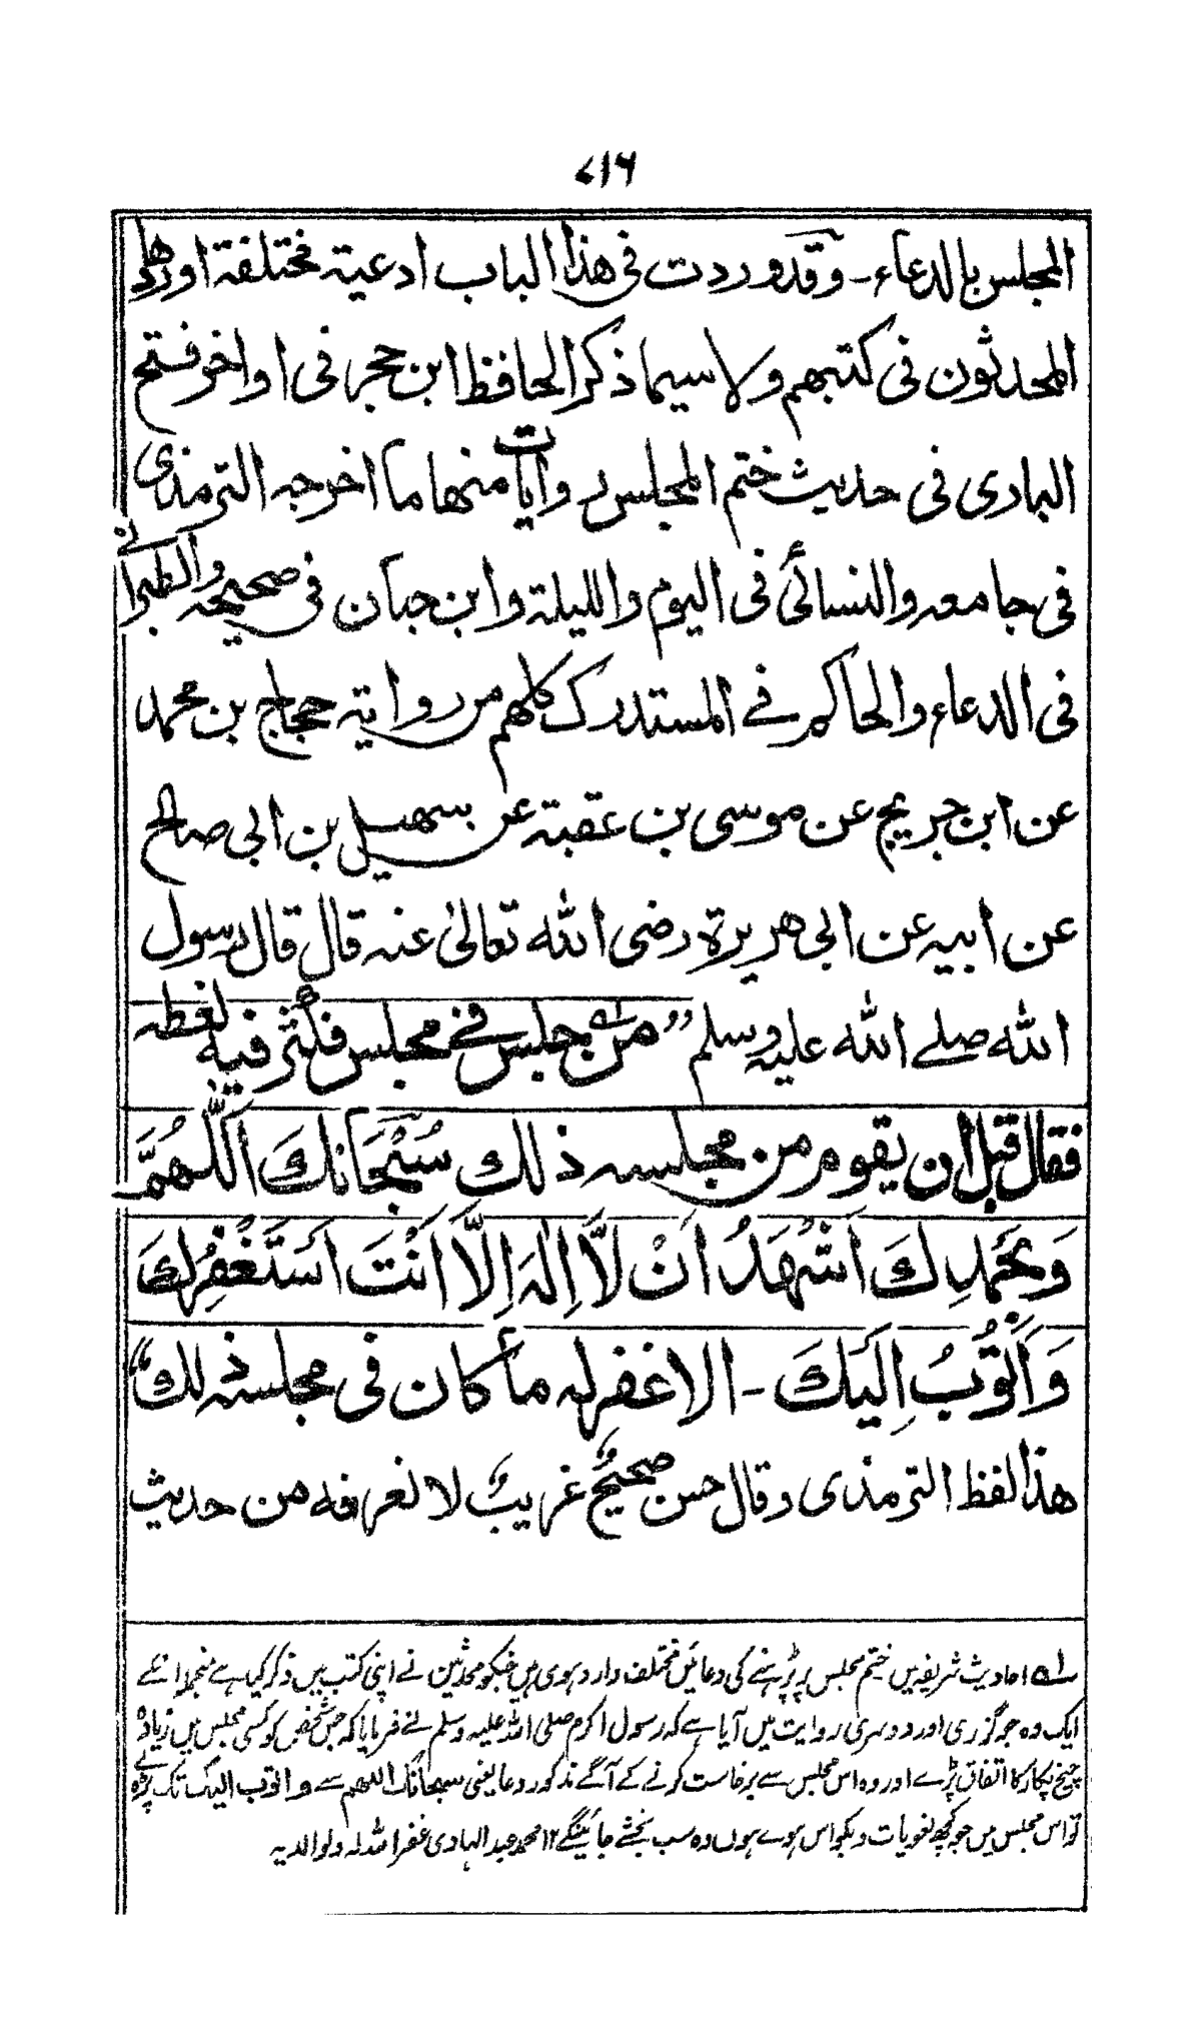 ۷۱۶
المجلس بالدعاء۔ وقد وردت فی هذا الباب ادعیة مختلفة اوردها
المحدثون فی کتبهم ولا سیما ذکر الحافظ ابن حجر فی اواخر فتح
الباری فی حدیث ختم المجلس روایات منها ما اخرجه الترمذی
فی جامعه والنسائی فی الیوم واللیلة وابن حبان فی صحیحه والطبرانے
فی الدعاء والحاکم فے المستدرک کلهم من روایة حجاج بن محمد
عن ابن جریج عن موسی بن عقبة عن سهیل بن ابی صالح
عن ابیه عن ابی هریرة رضی الله تعالیٰ عنه قال قال رسول
الله صلے الله علیه وسلم ”من له جلس فے مجلس فکثر فیه لغطه
فقال قبل ان یقوم من مجلسه ذلك سُبْحَانَكَ اَللّٰهُمَّ
وَبِحَمْدِكَ اَشْهَدُ اَنْ لَّا اِلٰهَ اِلَّا اَنْتَ اَسْتَغْفِرُكَ
وَاَتُوْبُ اِلَیْكَ ۔ الا غفر له ما کان فی مجلسه ذلك“
هذا لفظ الترمذی وقال حسن صحیحٌ غریبٌ لا نعرفه من حدیث
لہ احادیث شریفہ میں ختم مجلس پر پڑہنے کی دعائیں مختلف وارد ہوی ہیں جنکو محدثین نے اپنی کتب میں ذکر کیا ہے منجملہ انکے
ایک وہ جو گزری اور دوسری روایت میں آیا ہے کہ رسول اکرم صلی اللہ علیہ وسلم نے فرمایا کہ جس شخص کو کسی مجلس میں زیادہ
چیخ پکار کا اتفاق پڑے اور وہ اس مجلس سے برخاست کرنے کے آگے مذکور دعا یعنی سبحانک اللھم سے و اتوب الیک تک پڑہ لے
تو اس مجلس میں جو کچھ لغویات و بکواس ہوے ہوں وہ سب بخشے جائینگے ۱۲ محمد عبد الہادی غفر اللہ لہ ولوالدیہ